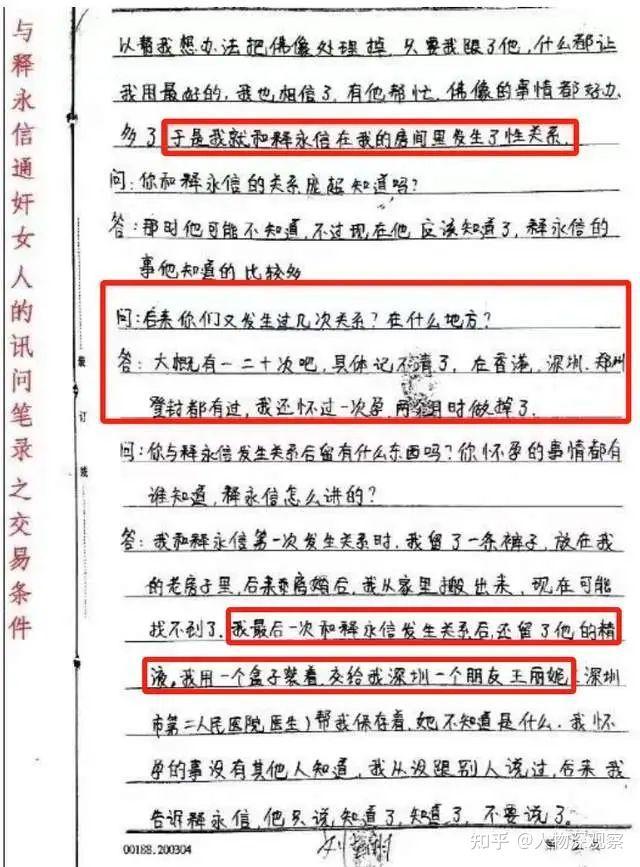 与释永信通奸女人的讯问笔录之交易条件
装
订
线
以帮我想办法把佛像处理掉,只要我跟了他,什么都让
我用最好的,我也相信了,有他帮忙,佛像的事情都好办
多了,于是我就和释永信在我的房间里发生了性关系.
问:你和释永信的关系庞超知道吗?
答:那时他可能不知道,不过现在他应该知道了,释永信的
事他知道的比较多
问:后来你们又发生过几次关系?在什么地方?
答:大概有一二十次吧,具体记不清了,在香港,深圳.郑州
登封都有过,我还怀过一次孕,两个月时做掉了.
问:你与释永信发生关系后留有什么东西吗?你怀孕的事情都有
谁知道,释永信怎么讲的?
答:我和释永信第一次发生关系时,我留了一条裤子,放在我
的老房子里,后来离婚后,我从家里搬出来,现在可能
找不到了.我最后一次和释永信发生关系后,还留了他的精
液,我用一个盒子装着,交给我深圳一个朋友王丽妮(深圳
市第二人民医院医生)帮我保存着,她不知道是什么.我怀
孕的事没有其他人知道,我从没跟别人说过,后来我
告诉释永信,他只说,知道了,知道了,不要说了.
00188.200304
第 页
知乎 @人物深观察